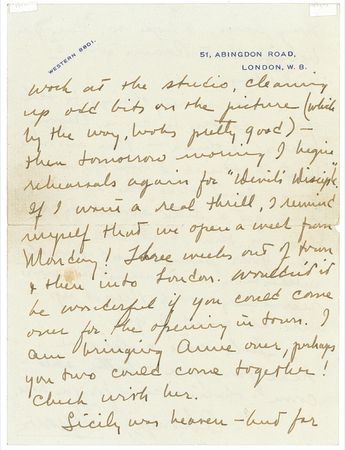 WESTERN 8801.
51, ABINGDON ROAD,
LONDON, W. 8.
work at the studio, cleaning
up odd bits on the picture (which
by the way, looks pretty good) –
then tomorrow morning I begin
rehearsals again for "Devil's Disciple".
If I want a real thrill, I remind
myself that we open a week from
Monday! Three weeks out of town
+ then into London. Wouldn't it
be wonderful if you could come
over for the opening in town. I
am bringing Anne over, perhaps
you two could come together!
Check with her.
Sicily was heaven – but far